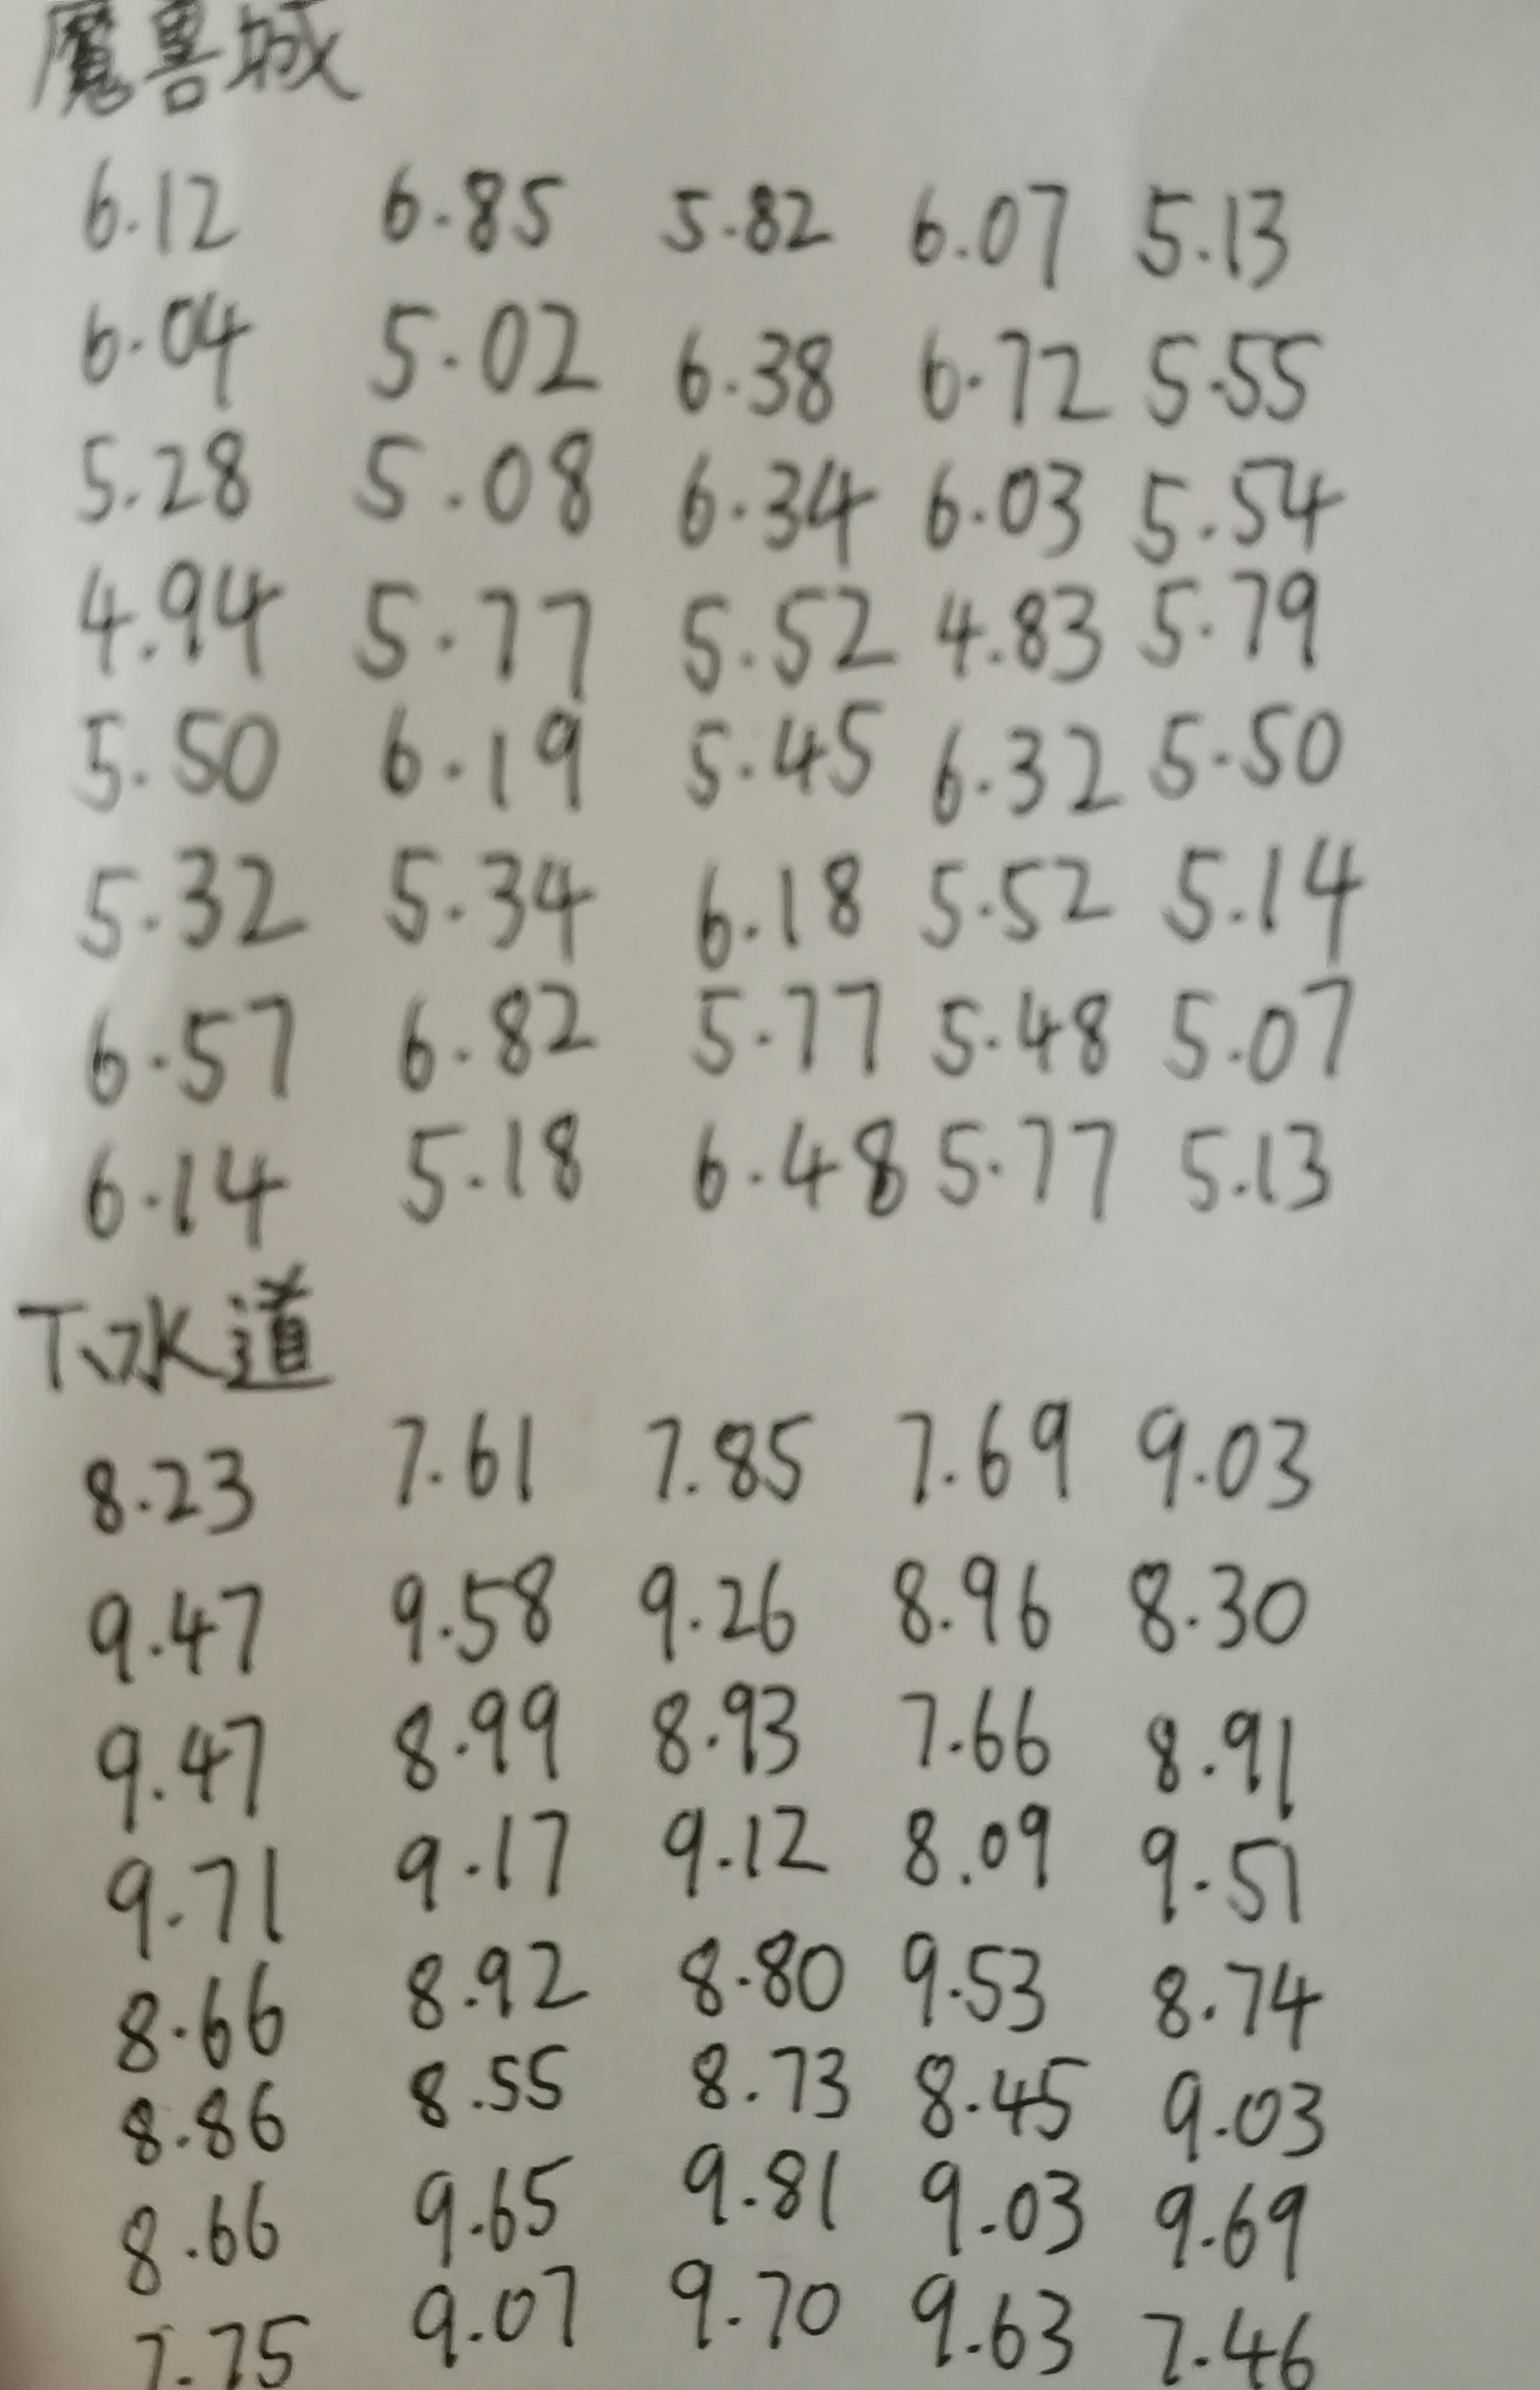 魔兽城
6.12 6.85 5.82 6.07 5.13
6.04 5.02 6.38 6.72 5.55
5.28 5.08 6.34 6.03 5.54
4.94 5.77 5.52 4.83 5.79
5.50 6.19 5.45 6.32 5.50
5.32 5.34 6.18 5.52 5.14
6.57 6.82 5.77 5.48 5.07
6.14 5.18 6.48 5.77 5.13
下水道
8.23 7.61 7.85 7.69 9.03
9.47 9.58 9.26 8.96 8.30
9.47 8.99 8.93 7.66 8.91
9.71 9.17 9.12 8.09 9.51
8.66 8.92 8.80 9.53 8.74
8.86 8.55 8.73 8.45 9.03
8.66 9.65 9.81 9.03 9.69
7.75 9.07 9.70 9.63 7.46